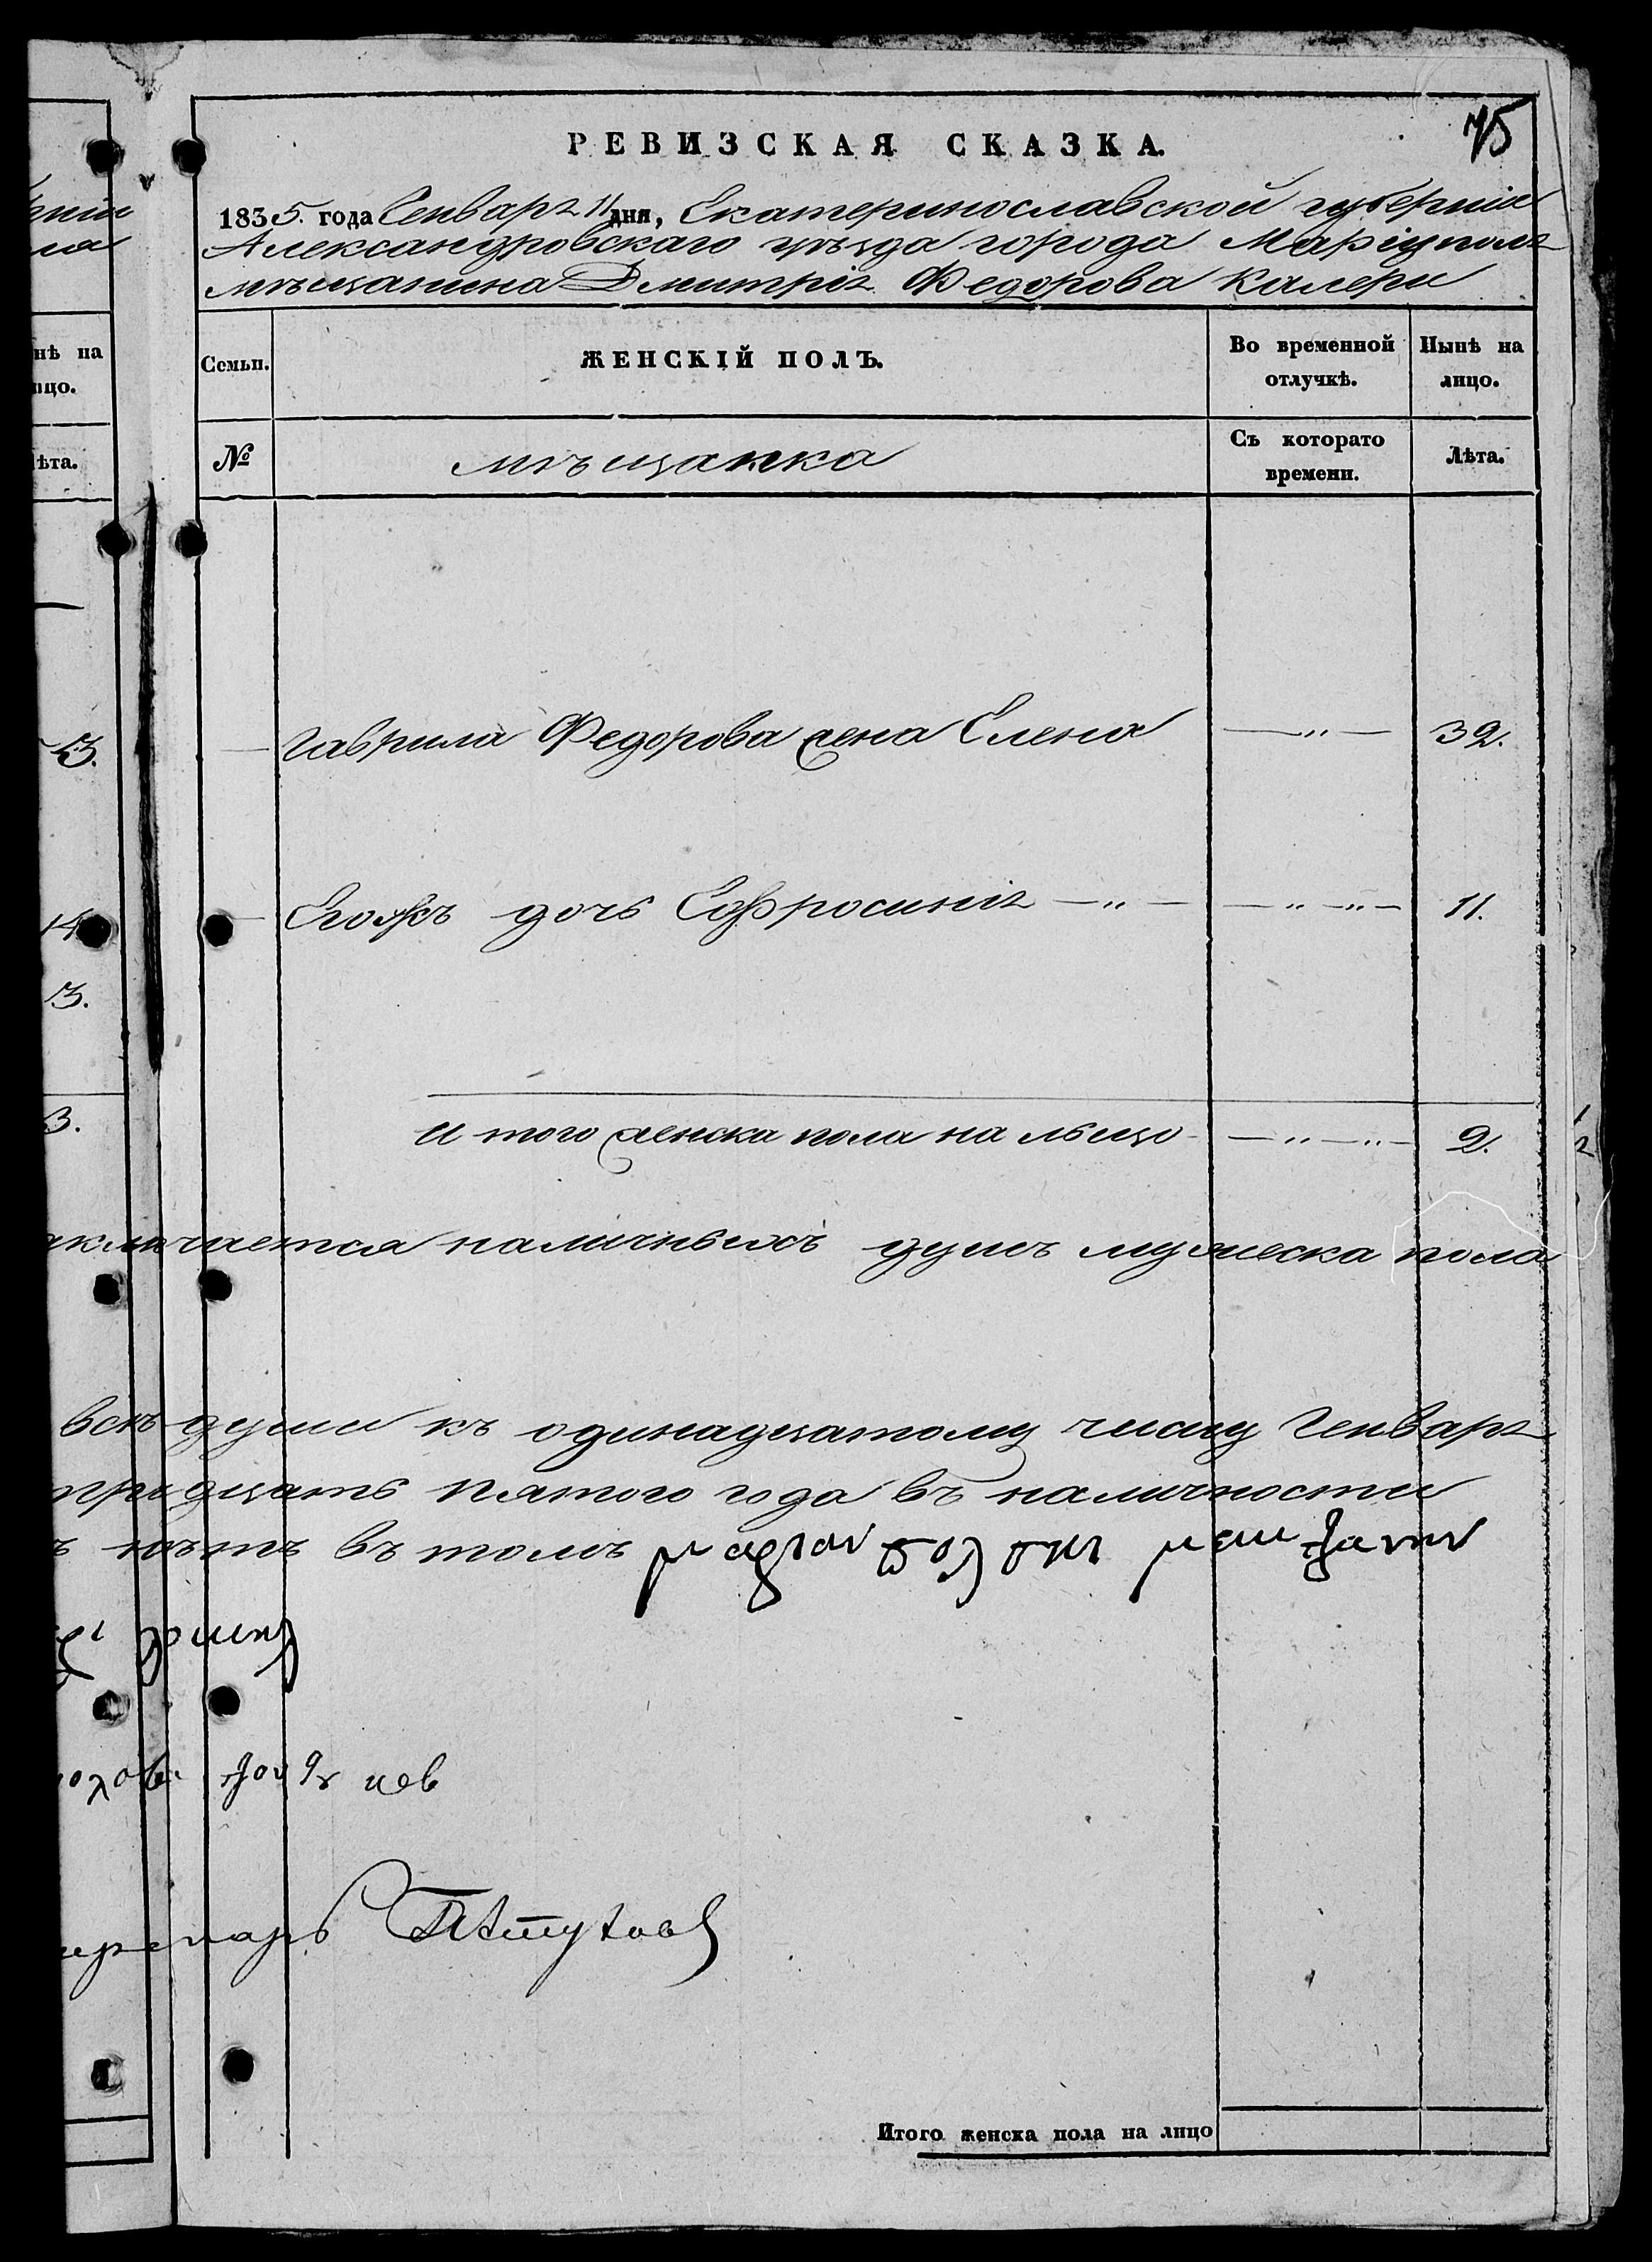 75
РЕВИЗСКАЯ СКАЗКА.
1835. года Генваря 11 дня, Екатеринославской губерніи
Александровскаго уѣзда города Маріуполя
мѣщанина Дмитрія Федорова Калери
Семьи. ЖЕНСКІЙ ПОЛЪ. Во временной отлучкѣ. Нынѣ на лицо.
№ мѣщанка Съ которато времени. Лѣта.
нѣ на
ицо.
ѣта.
Гаврила Федорова жена Елена — „ — 32.
Егожъ дочь Ефросинія — „ — — „ — „ — 11.
14
3.
3.
И того женска пола на лѣицо — „ — „ — 2.
аключается наличныхъ душъ мужеска пола
всѣ души къ одинадцатому числу Генваря
тридцать пятого года въ наличности
ъ нѣтъ въ томъ
Итого женска пола на лицо